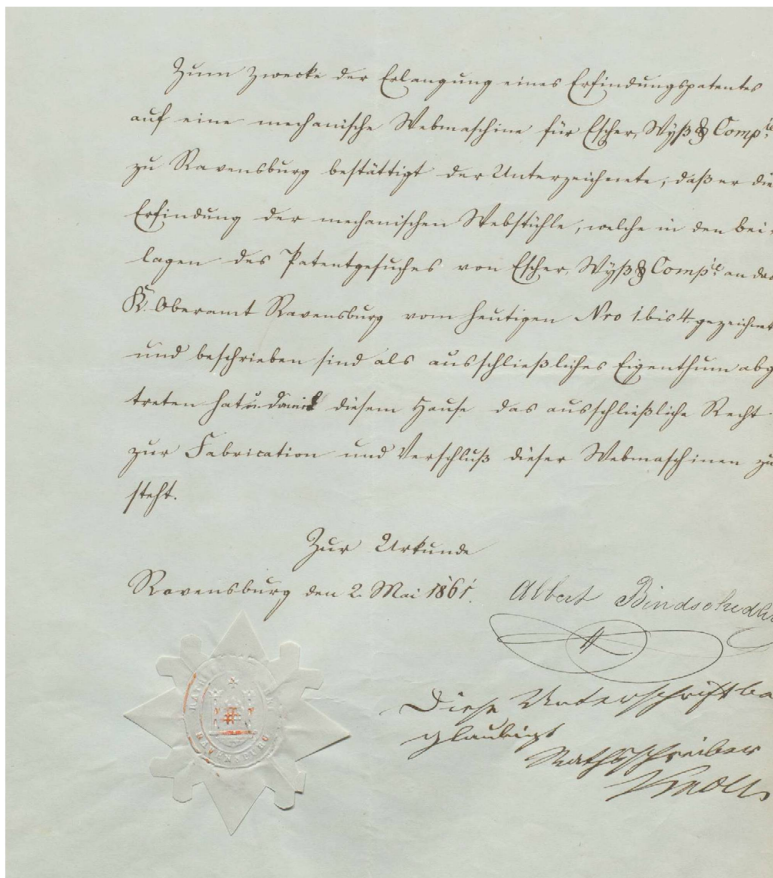 Zum Zwecke der Erlangung eines Erfindungspatentes
auf eine mechanische Webmaschine für Escher, Wyß & Compie
zu Ravensburg bestättigt der Unterzeichnete, daß er die
Erfindung der mechanischen Webstühle, welche in den bei-
lagen des Patentgesuches von Escher, Wyß & Compie an das
K. Oberamt Ravensburg vom heutigen Nro 1 bis 4 gezeichnet
und beschrieben sind als ausschließliches Eigenthum abge
treten hat u. damit diesem Hause das ausschließliche Recht
zur Fabrication und Verschluß dieser Webmaschinen zu
steht.
Zur Urkunde
Ravensburg den 2. Mai 1861.
Albert Bindschedler
Diese Unterschrift be
glaubigt
Rathsschreiber
RAVENSBURG